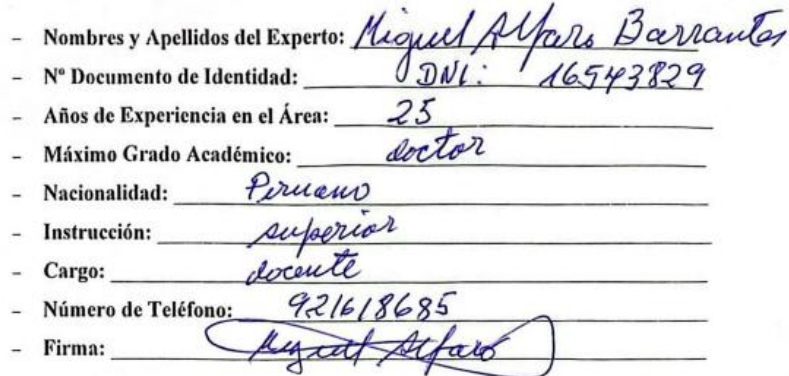 - Nombres y Apellidos del Experto: Miguel Alfaro Barrantes
- Nº Documento de Identidad: DNI: 16543829
- Años de Experiencia en el Área: 25
- Máximo Grado Académico: doctor
- Nacionalidad: Peruano
- Instrucción: superior
- Cargo: docente
- Número de Teléfono: 921618685
- Firma: Miguel Alfaro